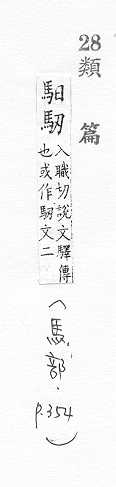 28 類篇
馹䭿
入職切說文驛傳
也或作䭿文二
(馬部.P.354)